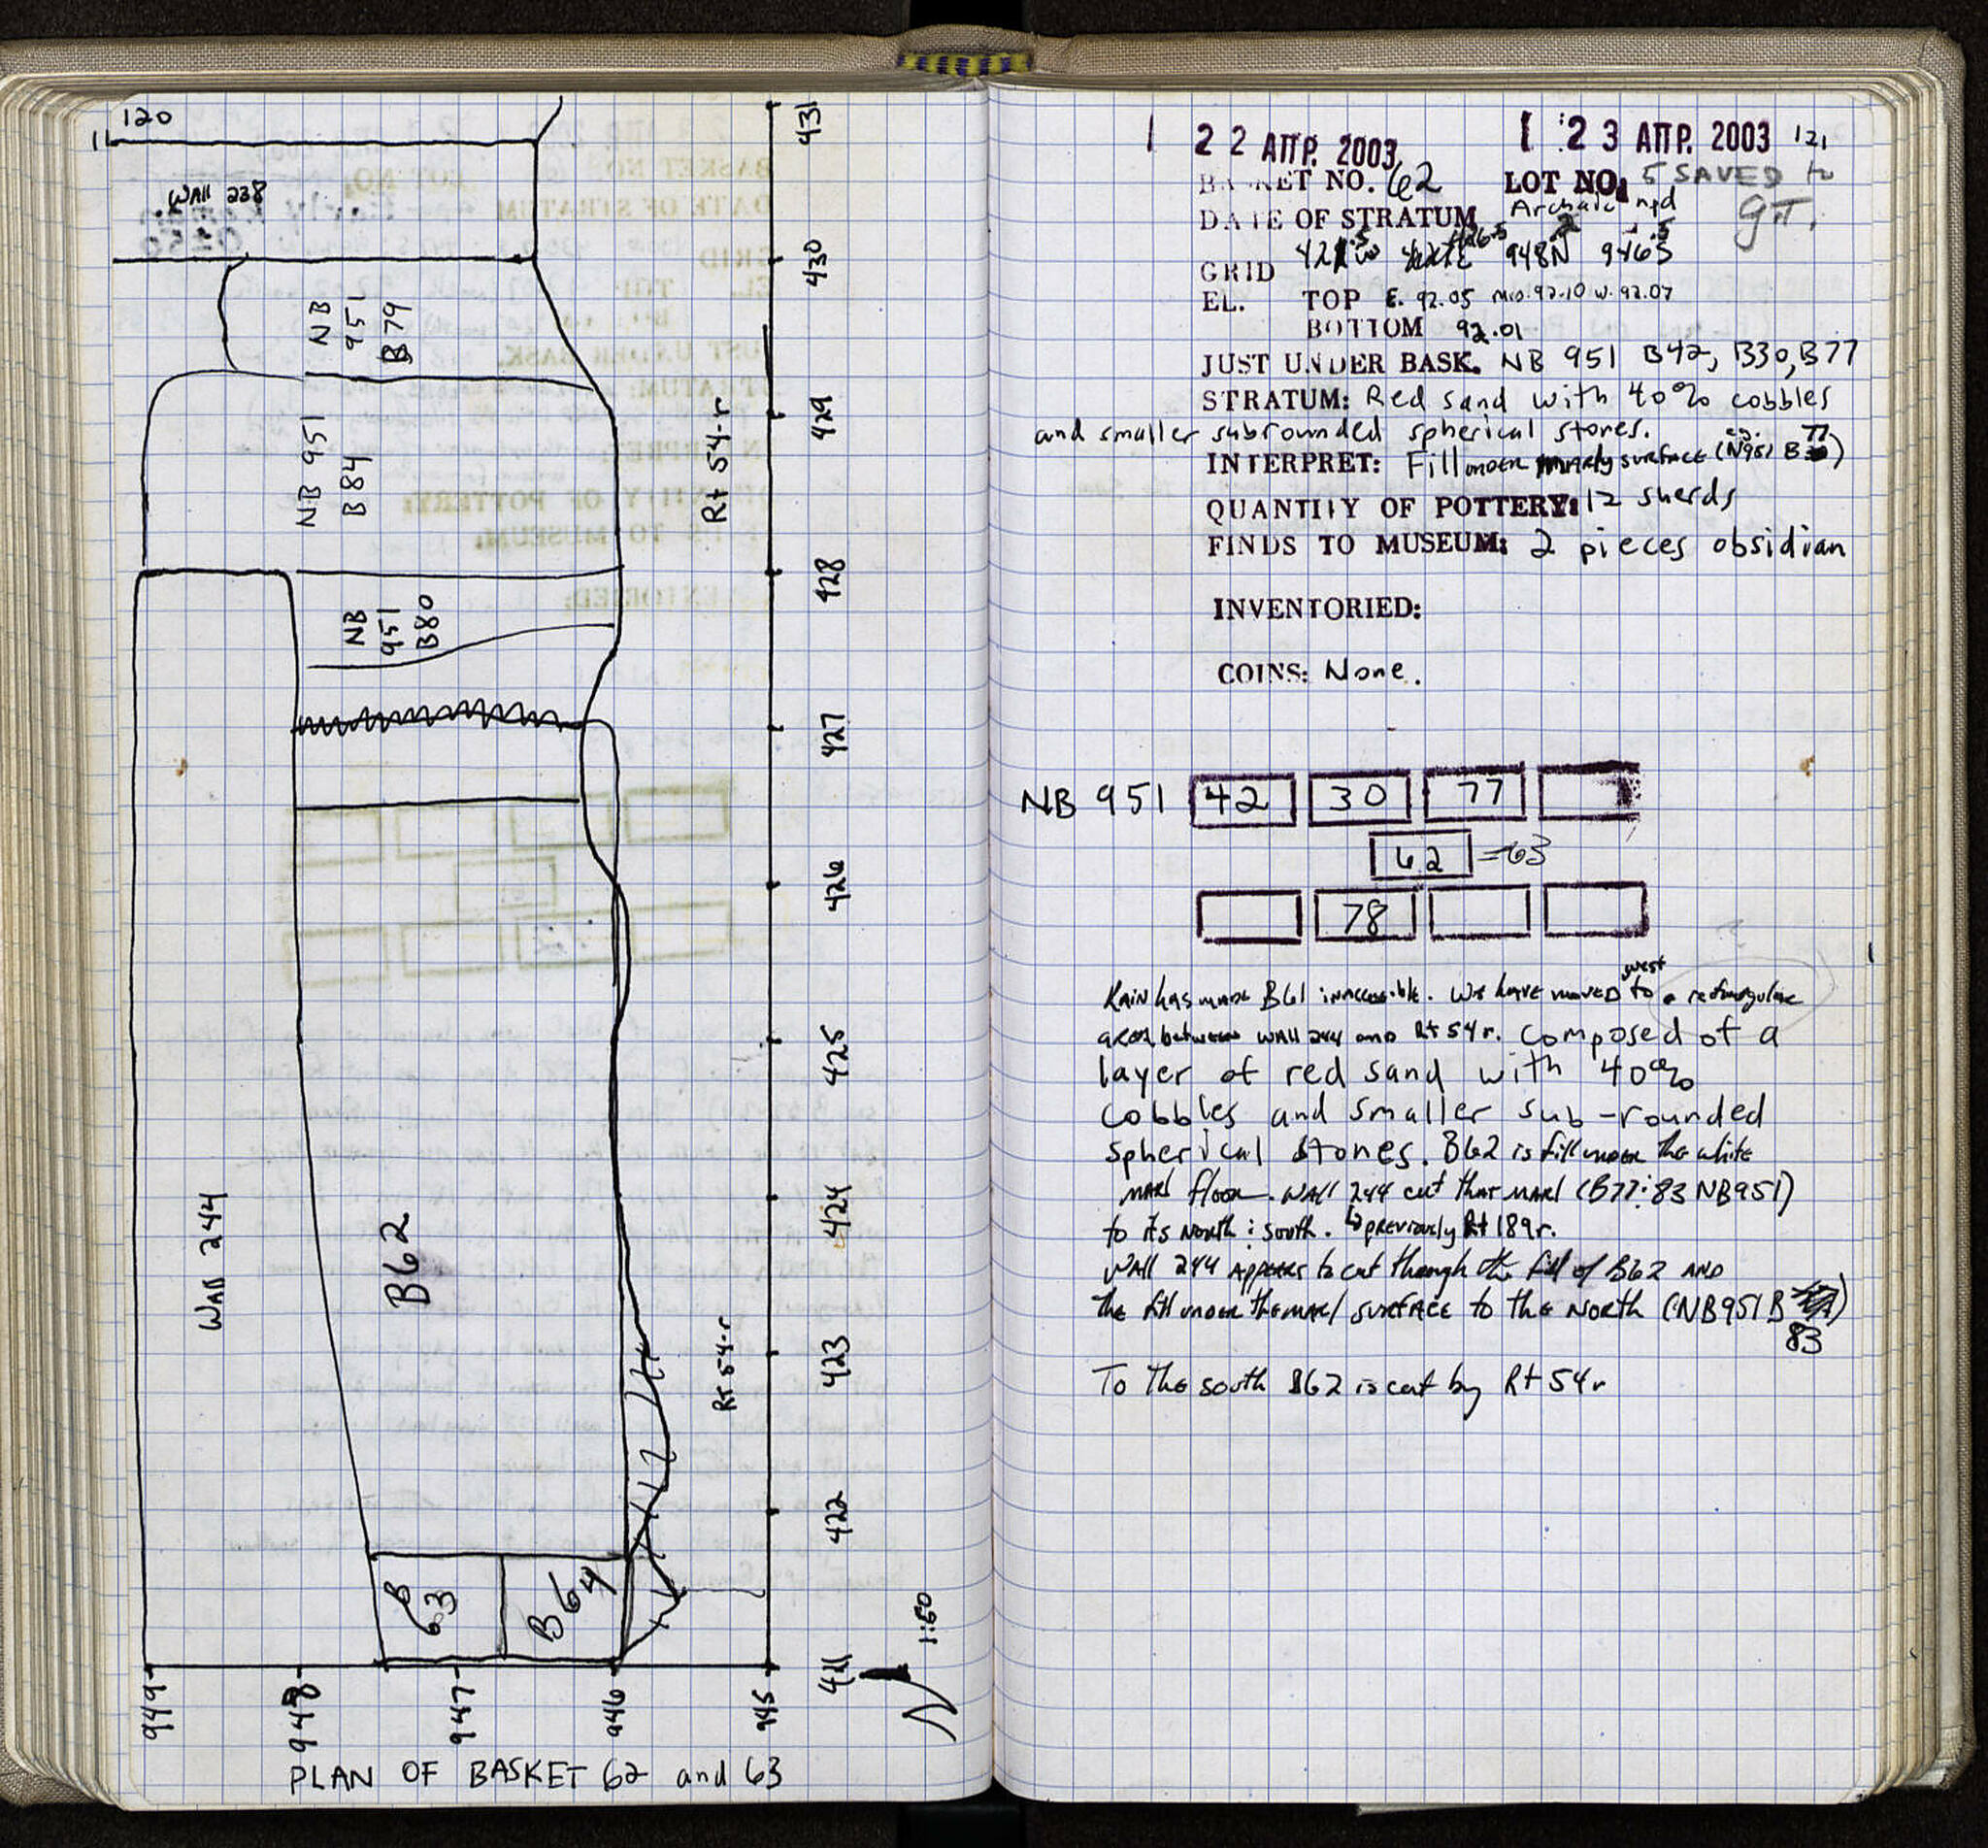 120
11
WAll 238
NB
951
B79
NB 951
B84
NB
951
B80
Rt 54-r
WAll 244
B62
Rt 54-r
B
63
B64
431
430
429
428
427
426
425
424
423
422
421
949
948
947
946
945
N
1:50
PLAN OF BASKET 62 and 63
1 22 ΑΠΡ. 2003 1 23 ΑΠΡ. 2003 121
BASKET NO. 62 LOT NO. 5 SAVED to
DATE OF STRATUM Archaic npd gπ.
GRID 421.5W 426.5 948N 946.5S
EL. TOP E. 92.05 MID. 92.10 W. 92.07
BOTTOM 92.01
JUST UNDER BASK. NB 951 B42, B30, B77
STRATUM: Red sand with 40% cobbles
and smaller subrounded spherical stones.
INTERPRET: Fill under marly surface (eg. N951 B77)
QUANTITY OF POTTERY: 12 sherds
FINDS TO MUSEUM: 2 pieces obsidian
INVENTORIED:
COINS: None.
NB 951 42 30 77
62 =63
78
Rain has made B61 inaccessible. We have moved west to a rectangular
area between WAll 244 and Rt 54r. Composed of a
layer of red sand with 40%
cobbles and smaller sub-rounded
spherical stones. B62 is fill under the white
marl floor. WAll 244 cut that marl (B77: 83 NB951)
to its North : South. ↳ previously Rt 189r.
WAll 244 Appears to cut through the fill of B62 AND
the fill under the marl surface to the North (NB951 B
83
To the south B62 is cut by Rt 54r